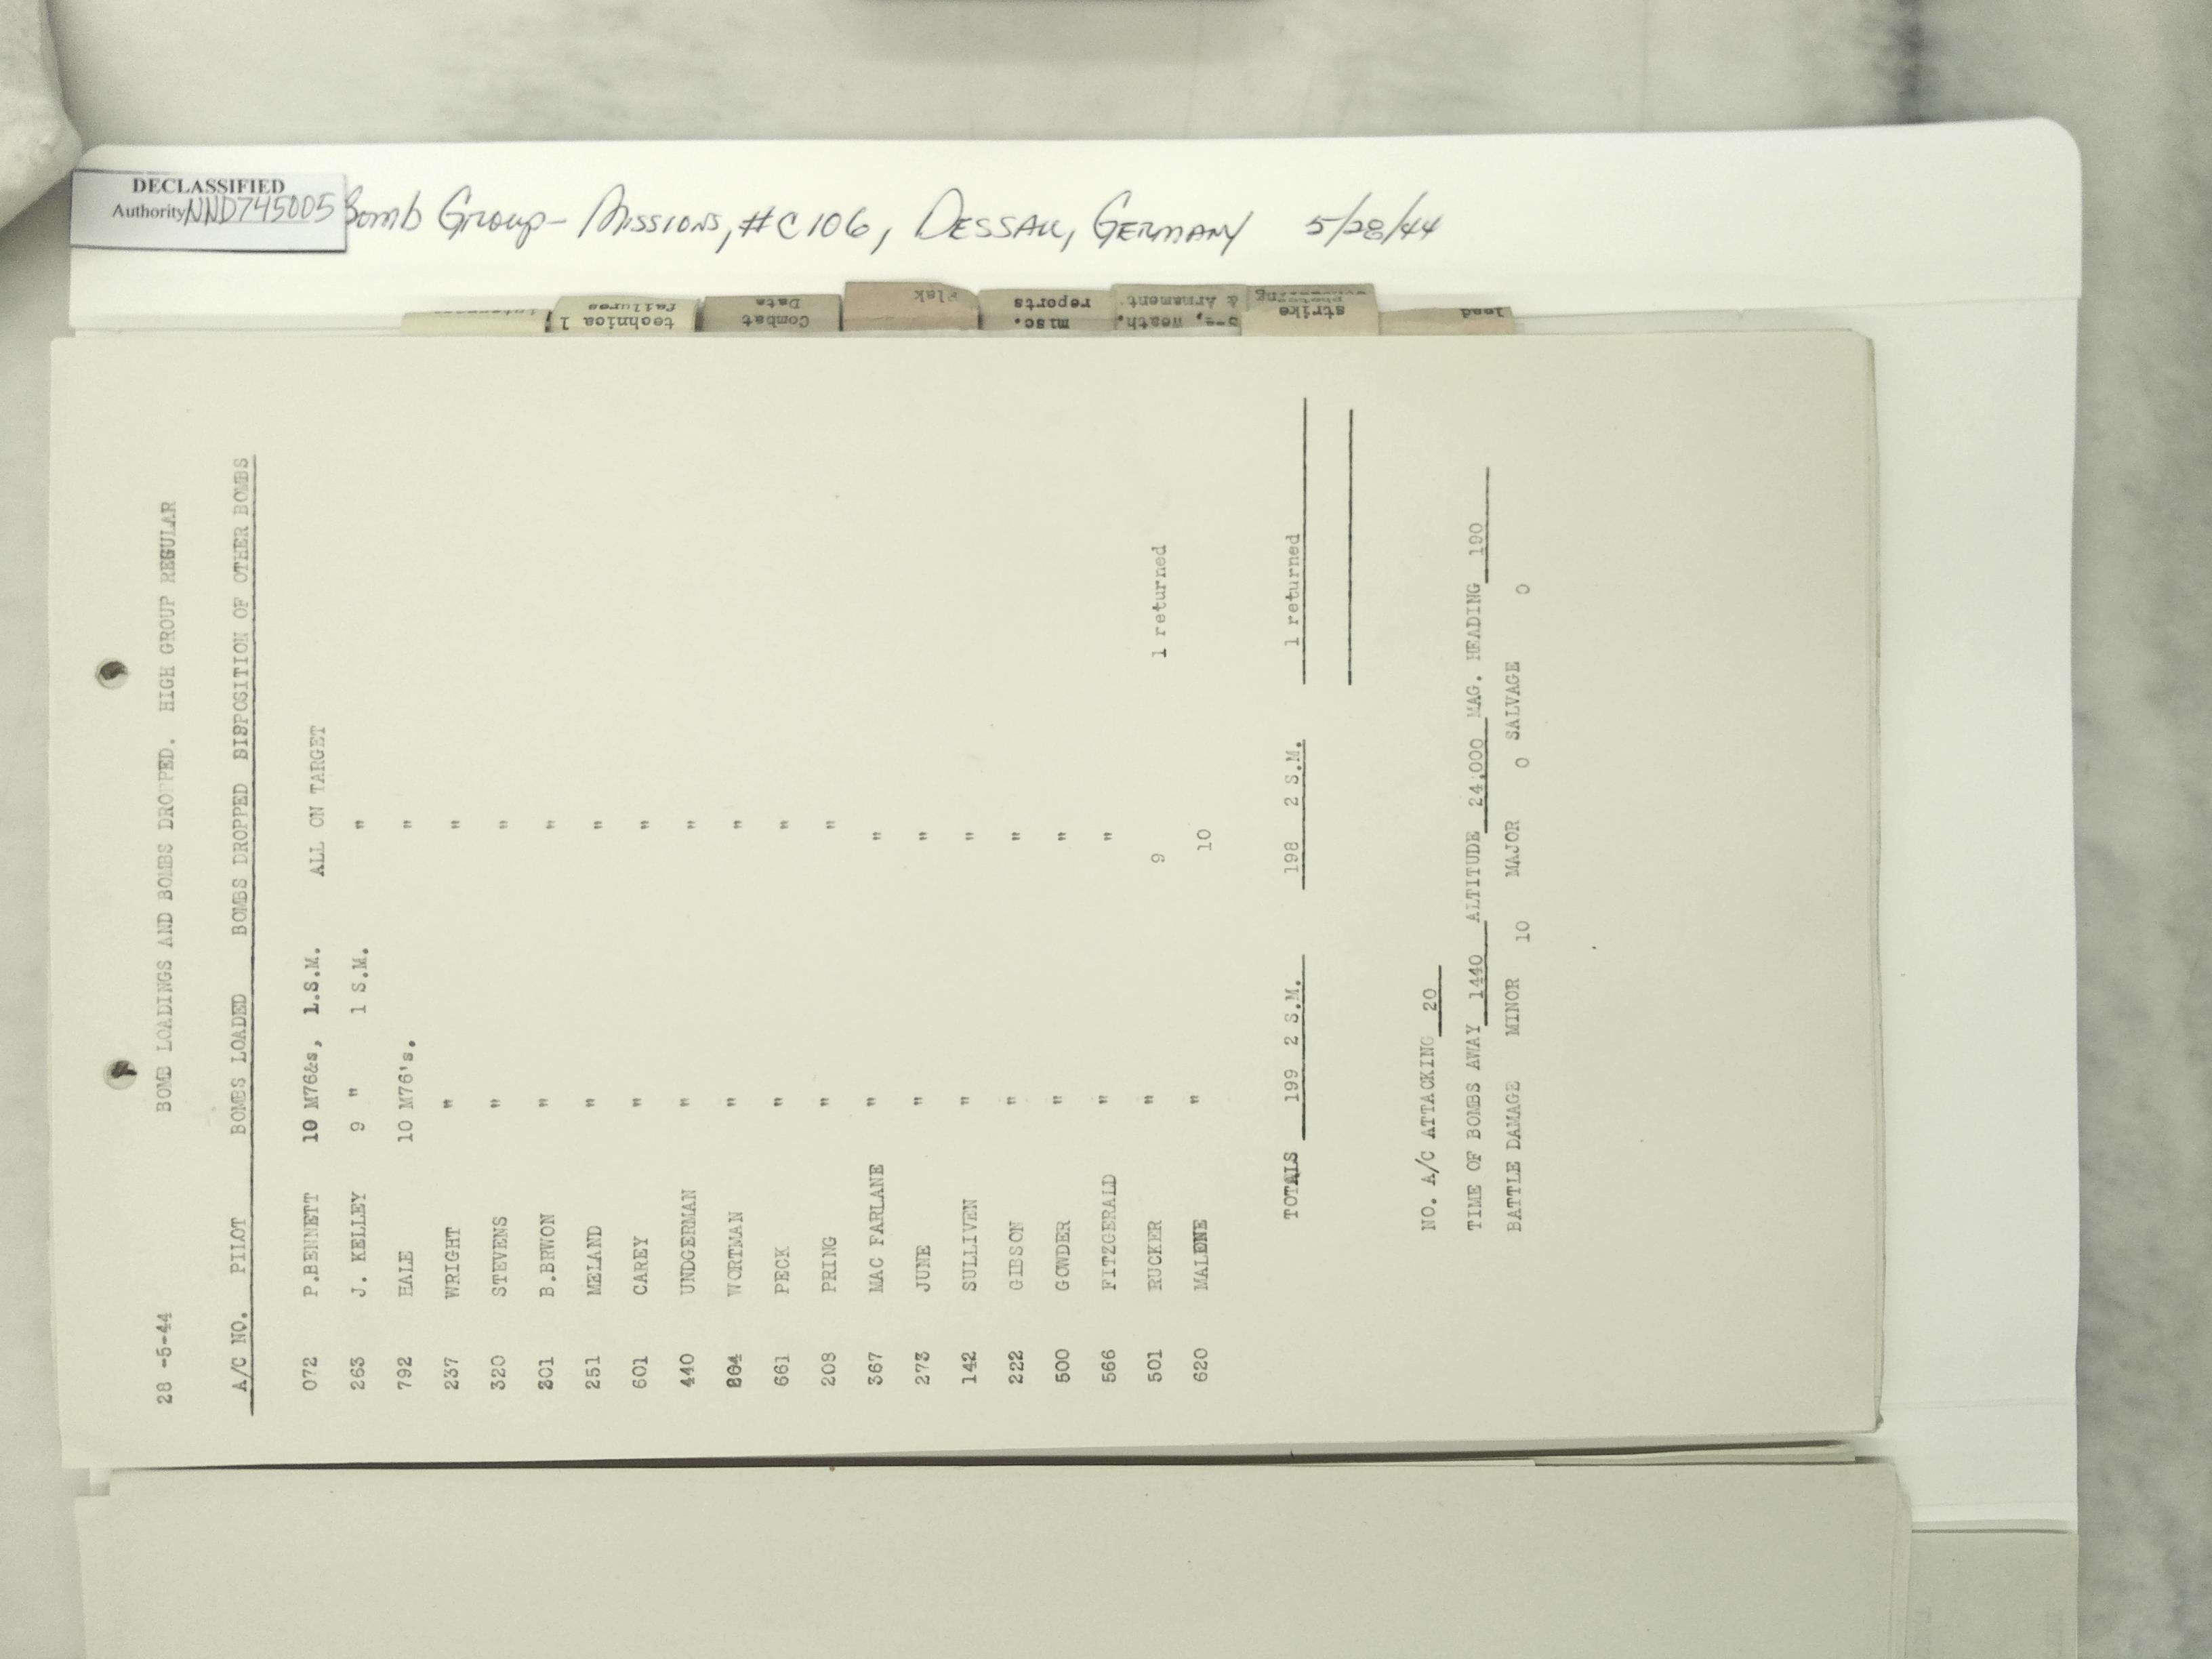 DECLASSIFIED
Authority NND745005
Bomb Group - Missions, #C106, Dessau, Germany 5/28/44
technical failures
Combat Data
Flak
misc. reports
Weath. & Armament
strike
lead
28 -5-44 BOMB LOADINGS AND BOMBS DROPPED. HIGH GROUP REGULAR
A/C NO. PILOT BOMBS LOADED BOMBS DROPPED DISPOSITION OF OTHER BOMBS
072 P.BENNETT 10 M76&s, 1.S.M. ALL ON TARGET
263 J. KELLEY 9 " 1 S.M. "
792 HALE 10 M76's. "
237 WRIGHT " "
320 STEVENS " "
301 B.BRWON " "
251 MELAND " "
601 CAREY " "
440 UNDGERMAN " "
WORTMAN " "
661 PECK " "
208 PRING " "
367 MAC FARLANE " "
273 JUNE " "
142 SULLIVEN " "
222 GIBSON " "
500 GOWDER " "
566 FITZGERALD " "
501 RUCKER " 9 1 returned
620 MALENE " 10
TOTALS 199 2 S.M. 198 2 S.M. 1 returned
NO. A/C ATTACKING 20
TIME OF BOMBS AWAY 1440 ALTITUDE 24,000 MAG. HEADING 190
BATTLE DAMAGE MINOR 10 MAJOR 0 SALVAGE 0